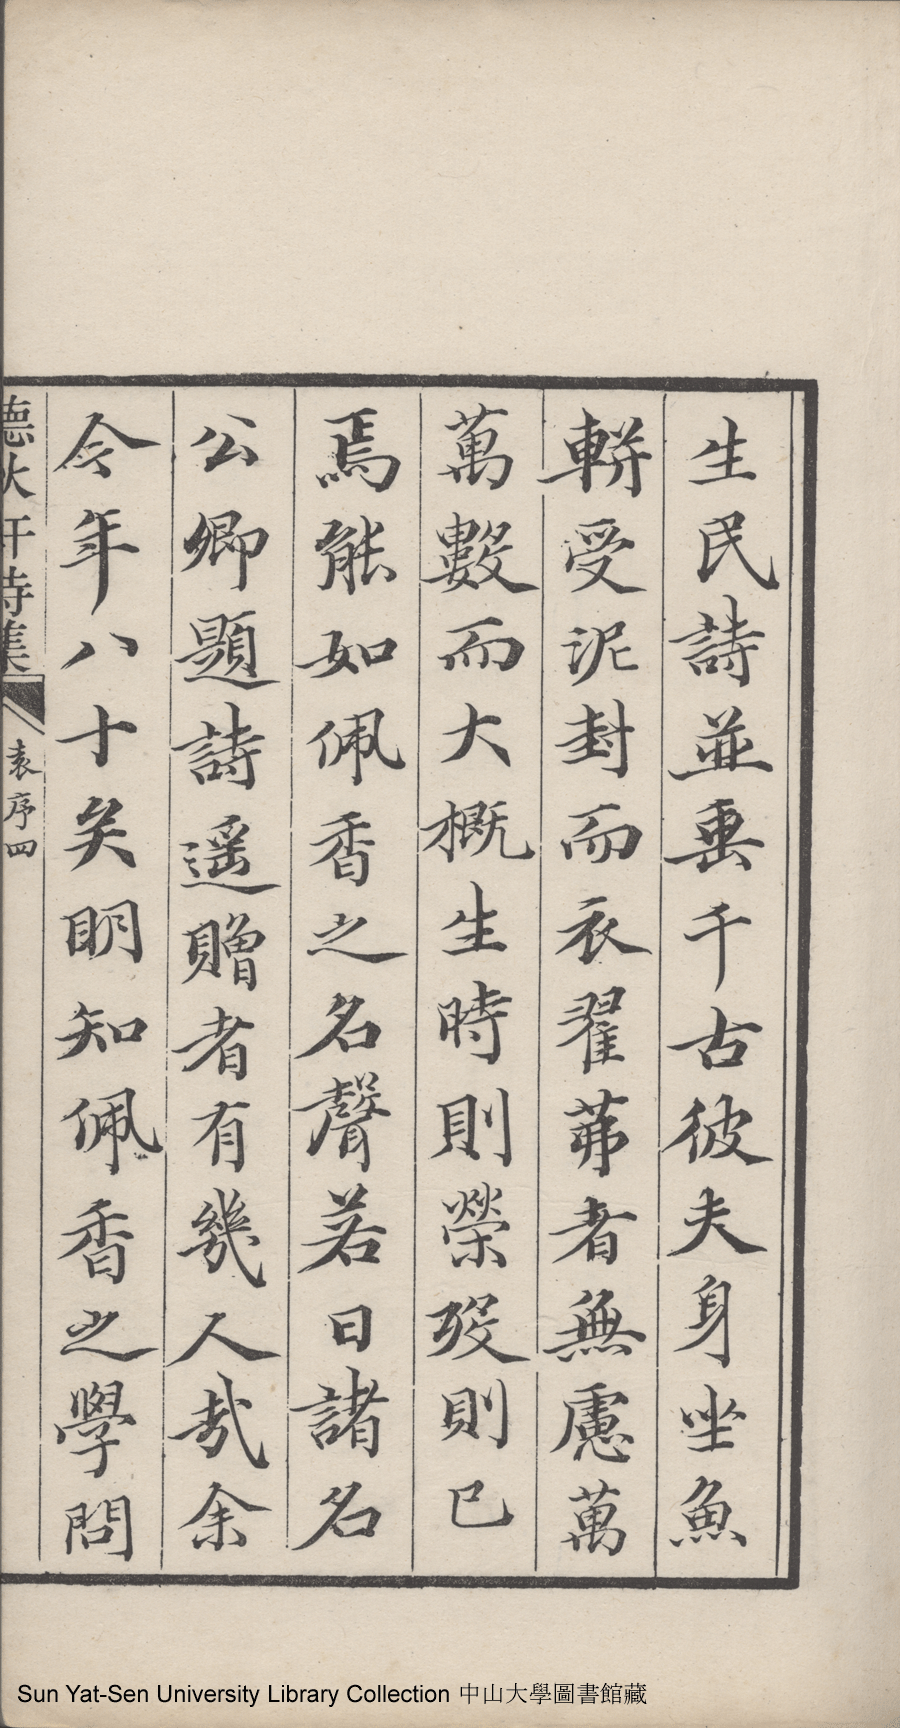 生民詩並垂千古彼夫身坐魚
軿受泥封而衣翟茀者無慮萬
萬數而大概生時則榮歿則已
焉能如佩香之名聲若日諸名
公卿題詩遥贈者有幾人哉余
今年八十矣明知佩香之學問
詩集
袁序四
Sun Yat-Sen University Library Collection 中山大學圖書館藏